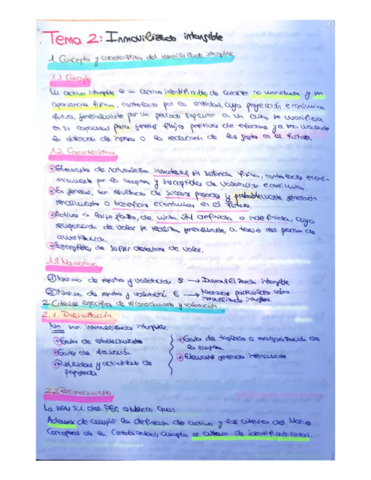 Tema 2: Inmovilizado intangible
1. Concepto y características del inmovilizado intangible
1.1. Concepto
Un activo intangible es un activo identificable, de carácter no monetario y sin
apariencia física, controlado por la entidad, cuya proyección económica
futura, generalmente por un periodo superior a un año, se manifiesta
en su capacidad para generar flujos positivos de efectivo
la obtención de rentas o la reducción de los gastos en el futuro.
1.2. Características
Elementos de naturaleza inmaterial, sin sustancia física, controlados
por la empresa y susceptibles de valoración económica.
En general, son resultado de sucesos pasados y probablemente generarán
rendimientos o beneficios económicos en el futuro.
Activos a largo plazo, de vida útil definida o indefinida, cuya
recuperación de valor se realiza, generalmente, a través del proceso de
amortización.
Susceptibles de sufrir deterioro de valor.
1.3. Normativa
Norma de registro y valoración 5 → Inmovilizado intangible
Norma de registro y valoración 6 → Normas particulares sobre
inmovilizado intangible
2. Criterios específicos de reconocimiento y valoración
2.1. Delimitación
No son inmovilizado intangible:
Gastos de establecimiento
Gastos de
Publicidad y actividades de
propaganda
Gastos de traslado o reorganización de
la empresa
Elementos generados internamente
2.2. Reconocimiento
La NRV 5.1. del PGC establece que:
Además de cumplir la definición de activo y los criterios del Marco
Conceptual de la Contabilidad, cumpla el criterio de identificabilidad.